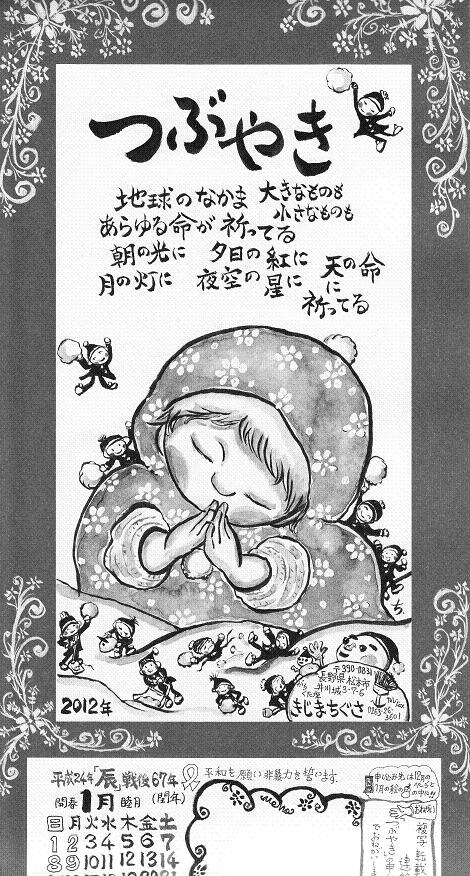 つぶやき
地球のなかま 大きなものも
小さなものも
あらゆる命が 祈ってる
朝の光に 夕日の紅に
月の灯に 夜空の星に
天の命に
祈ってる
2012年
〒390-0831
長野県松本市
井川城3-7-6
きじまちぐさ
Tel/Fax
0263-26-
3601
平成24年「辰」戦後67年
平和を願い非暴力を誓います。
開春 1月 睦月 (閏年)
日月火水木金土
1 2 3 4 5 6 7
8 9 10 11 12 13 14
申し込み先は12月の
複写 転載